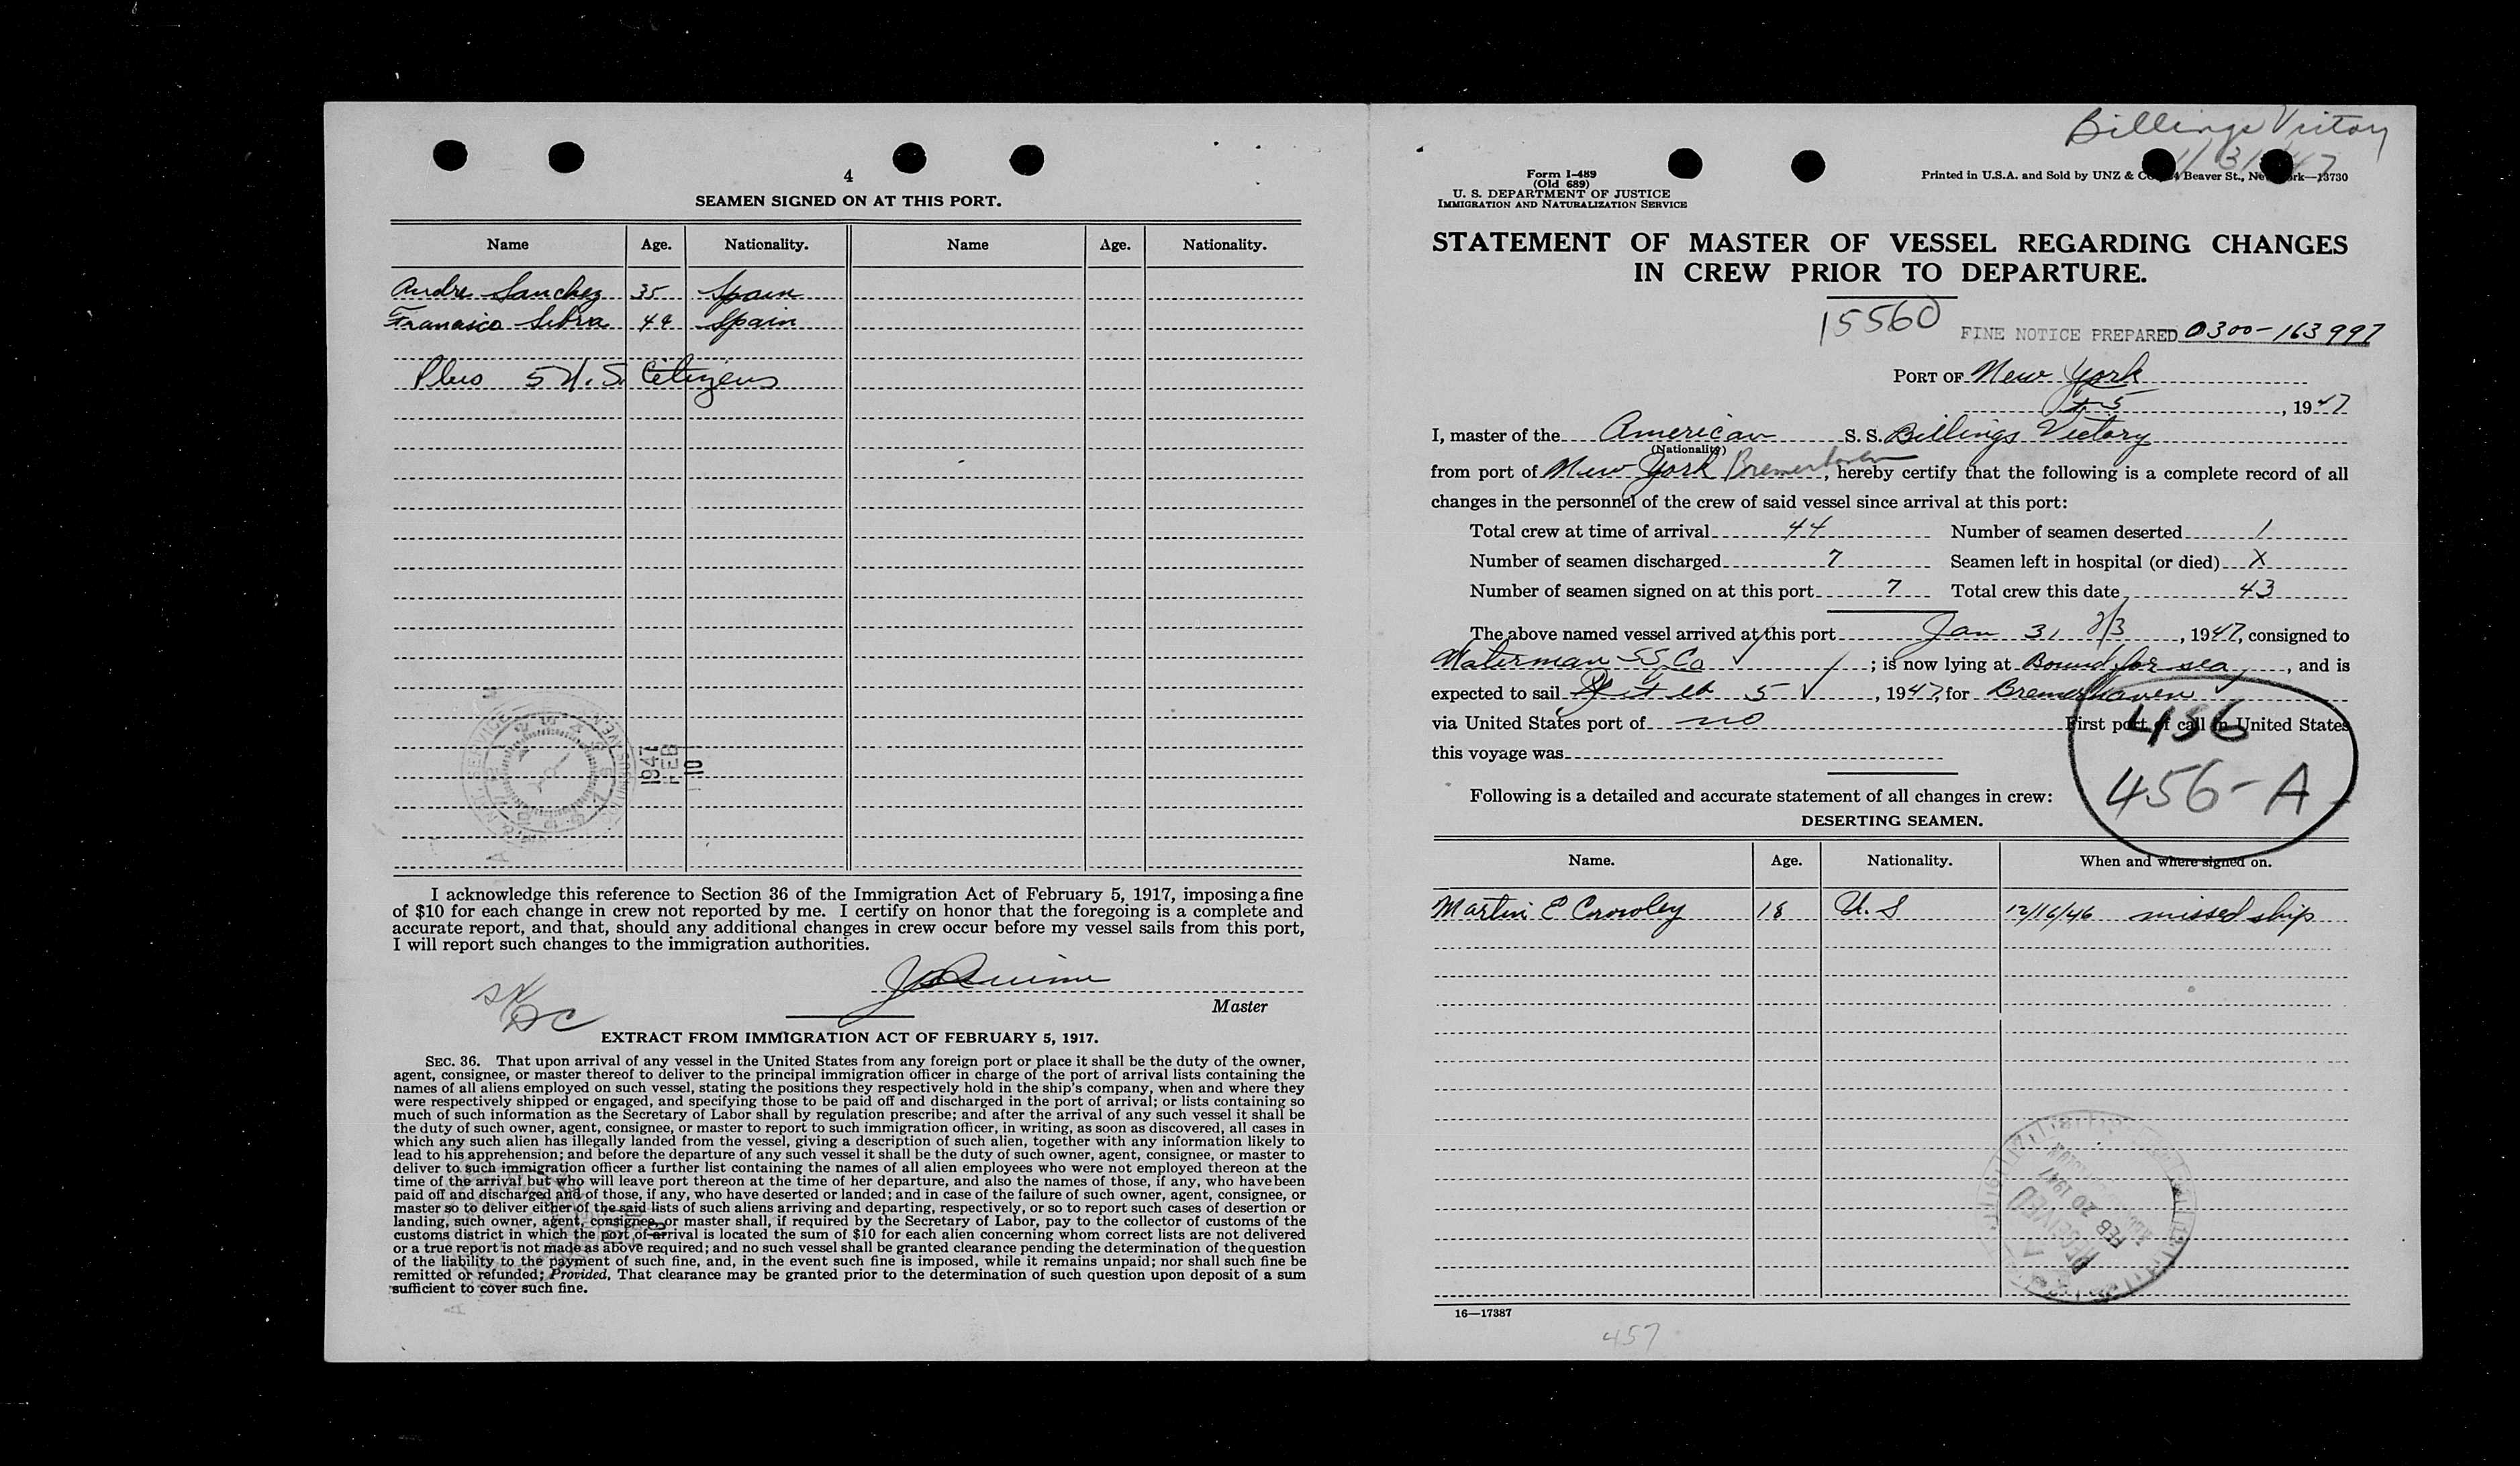 4
SEAMEN SIGNED ON AT THIS PORT.
Name Age. Nationality. Name Age. Nationality.
Andre Sanchez 35 Spain
Francisco 44 Spain
Plus 5 U.S. Citizens
1947
FEB
10
I acknowledge this reference to Section 36 of the Immigration Act of February 5, 1917, imposing a fine
of $10 for each change in crew not reported by me. I certify on honor that the foregoing is a complete and
accurate report, and that, should any additional changes in crew occur before my vessel sails from this port,
I will report such changes to the immigration authorities.
Master
EXTRACT FROM IMMIGRATION ACT OF FEBRUARY 5, 1917.
SEC. 36. That upon arrival of any vessel in the United States from any foreign port or place it shall be the duty of the owner,
agent, consignee, or master thereof to deliver to the principal immigration officer in charge of the port of arrival lists containing the
names of all aliens employed on such vessel, stating the positions they respectively hold in the ship's company, when and where they
were respectively shipped or engaged, and specifying those to be paid off and discharged in the port of arrival; or lists containing so
much of such information as the Secretary of Labor shall by regulation prescribe; and after the arrival of any such vessel it shall be
the duty of such owner, agent, consignee, or master to report to such immigration officer, in writing, as soon as discovered, all cases in
which any such alien has illegally landed from the vessel, giving a description of such alien, together with any information likely to
lead to his apprehension; and before the departure of any such vessel it shall be the duty of such owner, agent, consignee, or master to
deliver to such immigration officer a further list containing the names of all alien employees who were not employed thereon at the
time of the arrival but who will leave port thereon at the time of her departure, and also the names of those, if any, who have been
paid off and discharged and of those, if any, who have deserted or landed; and in case of the failure of such owner, agent, consignee, or
master so to deliver either of the said lists of such aliens arriving and departing, respectively, or so to report such cases of desertion or
landing, such owner, agent, consignee, or master shall, if required by the Secretary of Labor, pay to the collector of customs of the
customs district in which the port of arrival is located the sum of $10 for each alien concerning whom correct lists are not delivered
or a true report is not made as above required; and no such vessel shall be granted clearance pending the determination of the question
of the liability to the payment of such fine, and, in the event such fine is imposed, while it remains unpaid; nor shall such fine be
remitted or refunded; Provided, That clearance may be granted prior to the determination of such question upon deposit of a sum
sufficient to cover such fine.
Billings Victory
1/31/47
Form I-489
(Old 689)
U. S. DEPARTMENT OF JUSTICE
IMMIGRATION AND NATURALIZATION SERVICE
Printed in U.S.A. and Sold by UNZ & Beaver St., 13730
STATEMENT OF MASTER OF VESSEL REGARDING CHANGES
IN CREW PRIOR TO DEPARTURE.
15560
FINE NOTICE PREPARED 0300-163997
PORT OF New York
5, 1947
I, master of the American S. S. Billings Victory
(Nationality)
from port of New York Bremerhaven, hereby certify that the following is a complete record of all
changes in the personnel of the crew of said vessel since arrival at this port:
Total crew at time of arrival 44 Number of seamen deserted 1
Number of seamen discharged 7 Seamen left in hospital (or died) X
Number of seamen signed on at this port 7 Total crew this date 43
The above named vessel arrived at this port Jan 31 2/3, 1947, consigned to
Waterman SS Co; is now lying at Bound for sea, and is
expected to sail Feb 5, 1947, for Bremerhaven
via United States port of no First port of call in United States
this voyage was
456
456-A
Following is a detailed and accurate statement of all changes in crew:
DESERTING SEAMEN.
Name. Age. Nationality. When and where signed on.
Martin E Crowley 18 U.S 12/16/46 missed ship
RECEIVED
FEB 20 1947
16—17387
457